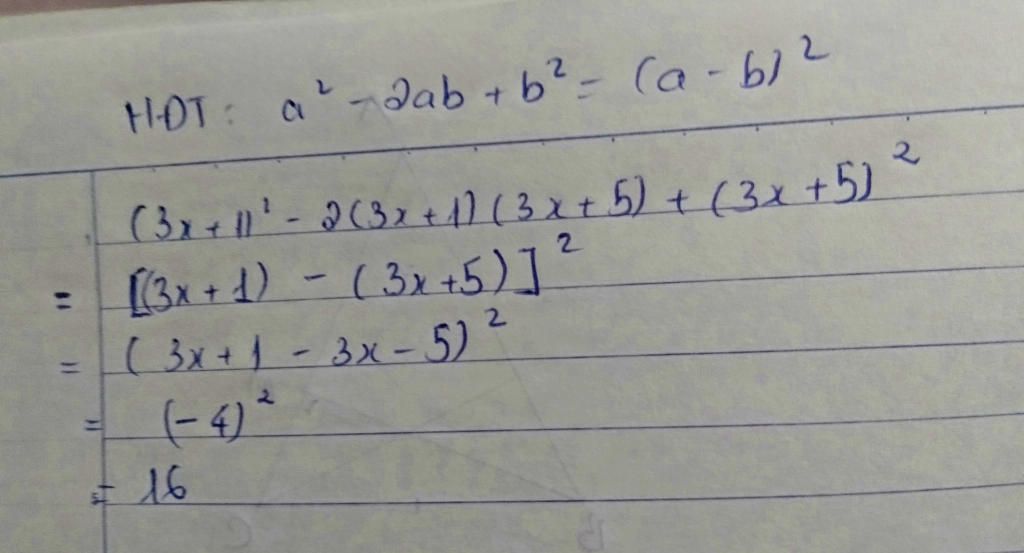 HĐT: a² - 2ab + b² = (a - b)²
(3x + 1)² - 2(3x + 1)(3x + 5) + (3x + 5)²
= [(3x + 1) - (3x + 5)]²
= (3x + 1 - 3x - 5)²
= (-4)²
= 16